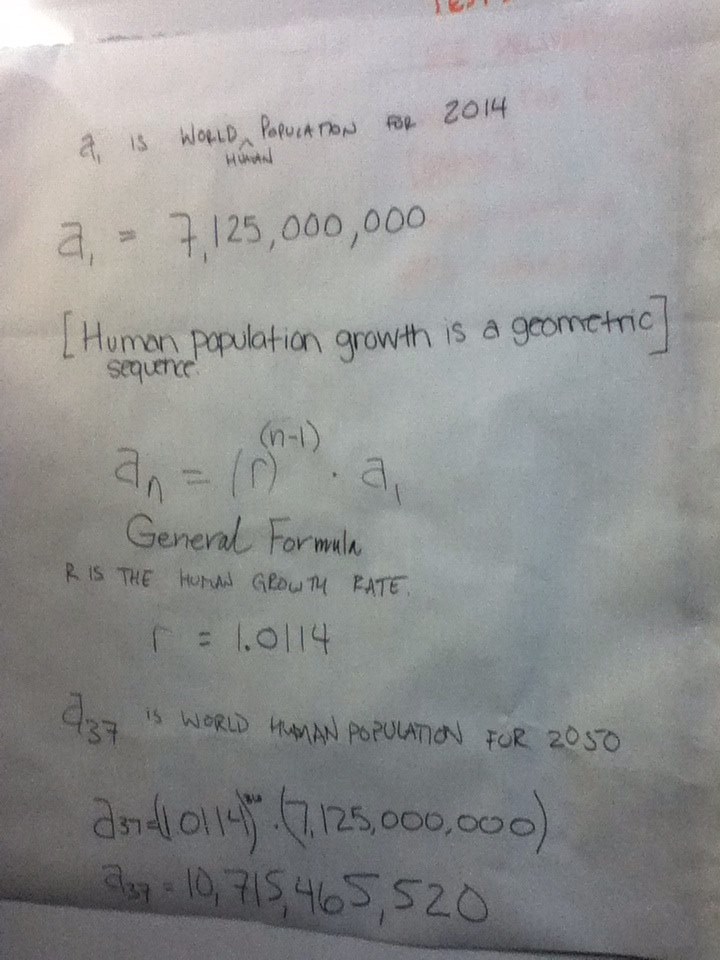 a₁ IS WORLD ^ POPULATION FOR 2014
HUMAN
a₁ = 7,125,000,000
[Human population growth is a geometric]
sequence.
aₙ = (r)⁽ⁿ⁻¹⁾ · a₁
General Formula
R IS THE HUMAN GROWTH RATE.
r = 1.0114
a₃₇ IS WORLD HUMAN POPULATION FOR 2050
a₃₇=(1.0114) · (7,125,000,000)
a₃₇ = 10,715,465,520